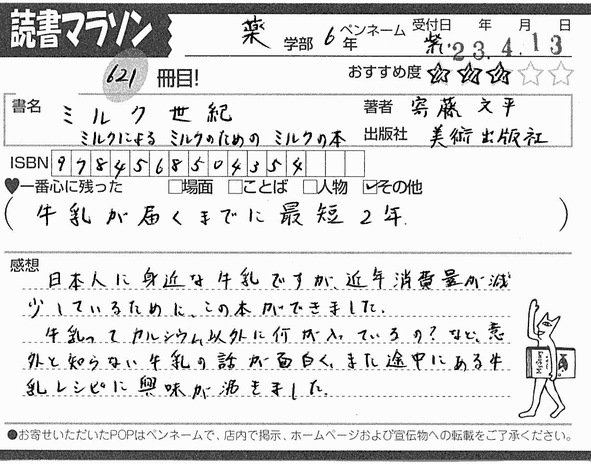 読書マラソン
薬 学部 6年 ペンネーム 紫. 受付日 年 月 日 23.4.13
621 冊目! おすすめ度 ★★★☆☆
書名 ミルク世紀 著者 寄藤文平
ミルクによる ミルクのための ミルクの本 出版社 美術出版社
ISBN 9784568504354
♥一番心に残った □場面 □ことば □人物 ☑その他
(牛乳が届くまでに最短2年.)
感想
日本人に身近な牛乳ですが、近年消費量が減
少しているために、この本ができました.
牛乳ってカルシウム以外に何が入っているの?など、意
外と知らない牛乳の話が面白く、また途中にある牛
乳レシピに興味が沸きました.
●お寄せいただいたPOPはペンネームで、店内で掲示、ホームページおよび宣伝物への転載をご了承ください。